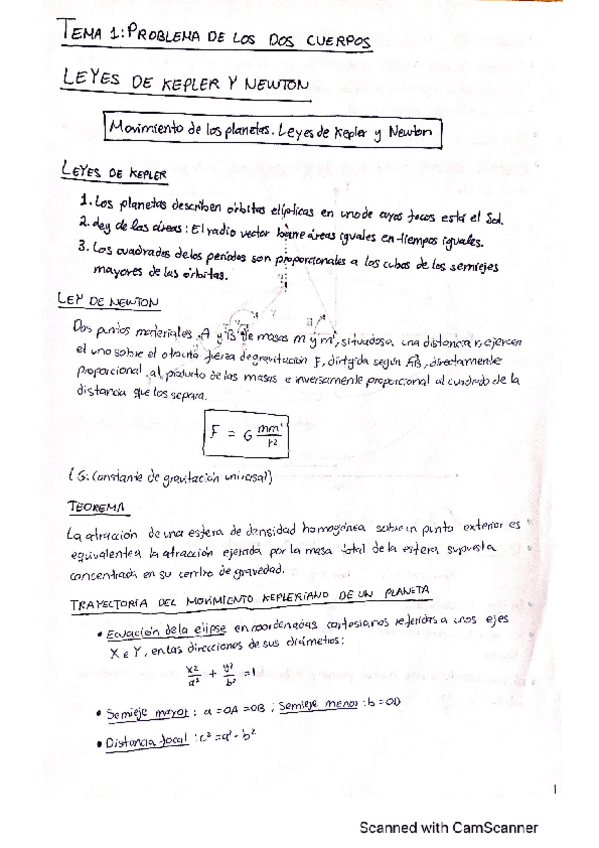 TEMA 1: PROBLEMA DE LOS DOS CUERPOS
LEYES DE KEPLER Y NEWTON
Movimiento de los planetas. Leyes de Kepler y Newton
LEYES DE KEPLER
1. Los planetas describen órbitas elípticas en uno de cuyos focos está el Sol.
2. Ley de las áreas: El radio vector barre áreas iguales en tiempos iguales.
3. Los cuadrados de los periodos son proporcionales a los cubos de los semiejes
mayores de las órbitas.
LEY DE NEWTON
Dos puntos materiales A y B de masas m y m', situados a una distancia r, ejercen
el uno sobre el otro una fuerza de gravitación F, dirigida según AB, directamente
proporcional al producto de las masas e inversamente proporcional al cuadrado de la
distancia que los separa.
F = G mm'/r²
(G: Constante de gravitación universal)
TEOREMA
La atracción de una esfera de densidad homogénea sobre un punto exterior es
equivalente a la atracción ejercida por la masa total de la esfera supuesta
concentrada en su centro de gravedad.
TRAYECTORIA DEL MOVIMIENTO KEPLERIANO DE UN PLANETA
• Ecuación de la elipse en coordenadas cartesianas referidas a unos ejes
X e Y, en las direcciones de sus diámetros:
x²/a² + y²/b² = 1
• Semieje mayor: a = OA = OB ; Semieje menor: b = OD
• Distancia focal: c² = a² - b²
1
Scanned with CamScanner